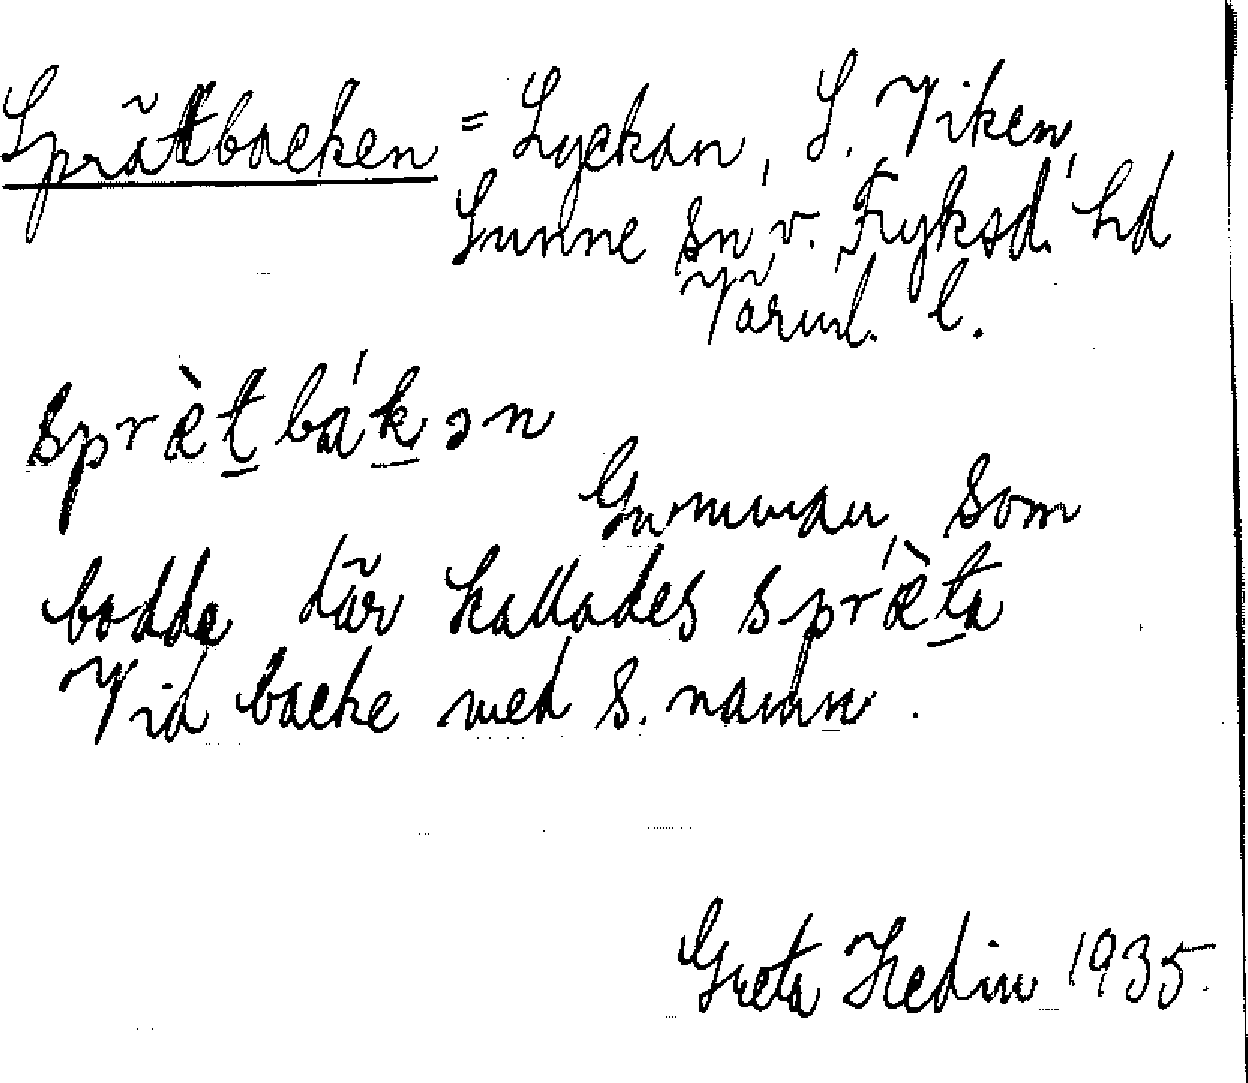 Sprättbacken = Lyckan, S. Viken,
Sunne sn v. Fryksd. hd
Värml. l.
sprèt̲bák̲ən
Gumman, som
bodde där kallades sprèt̲a
Vid backe med s. namn.
Greta Hedin 1935.